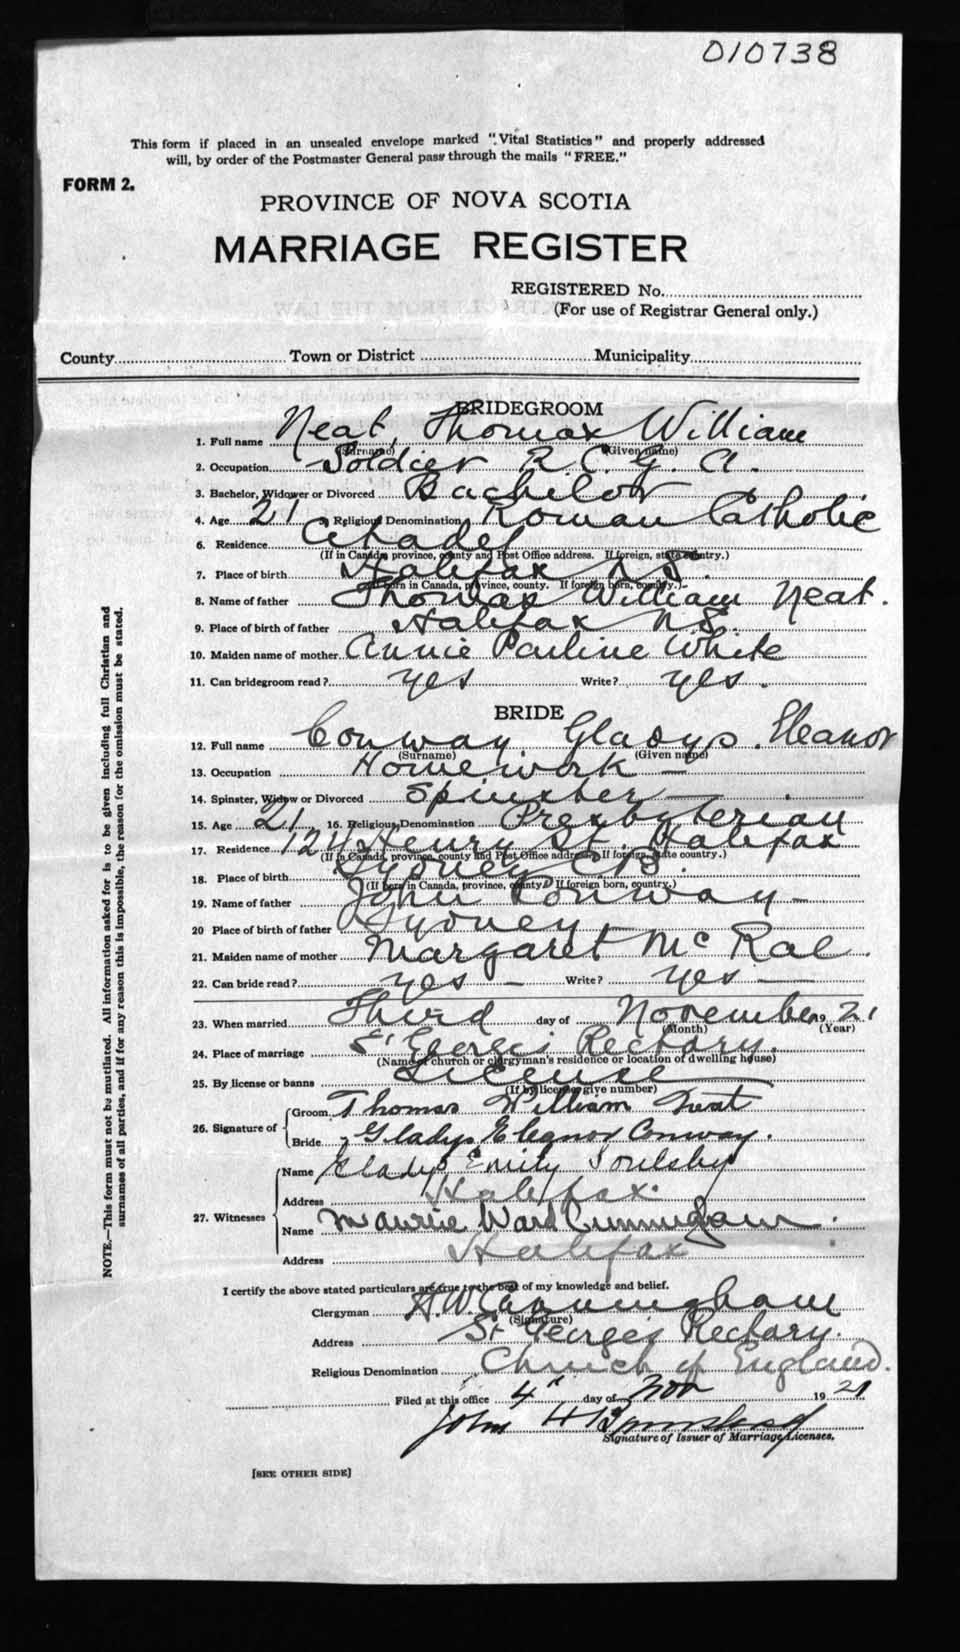 010738
This form if placed in an unsealed envelope marked "Vital Statistics" and properly addressed
will, by order of the Postmaster General pass through the mails "FREE."
FORM 2.
PROVINCE OF NOVA SCOTIA
MARRIAGE REGISTER
REGISTERED No.
(For use of Registrar General only.)
County Town or District Municipality
BRIDEGROOM
1. Full name Neat, Thomas William
(Surname) (Given name)
2. Occupation Soldier R.C.G.A.
3. Bachelor, Widower or Divorced Bachelor
4. Age 21 5. Religious Denomination Roman Catholic
6. Residence Citadel
(If in Canada, province, county and Post Office address. If foreign, state country.)
7. Place of birth Halifax N.S.
(If born in Canada, province, county. If foreign born, country.)
8. Name of father Thomas William Neat.
9. Place of birth of father Halifax N.S.
10. Maiden name of mother Annie Pauline White
11. Can bridegroom read? yes Write? yes.
BRIDE
12. Full name Conway, Gladys Eleanor
(Surname) (Given name)
13. Occupation Homework —
14. Spinster, Widow or Divorced Spinster —
15. Age 21 16. Religious Denomination Presbyterian
17. Residence Henry St. Halifax
(If in Canada, province, county and Post Office address. If foreign, state country.)
18. Place of birth Sydney C.B.
(If born in Canada, province, county. If foreign born, country.)
19. Name of father John Conway —
20 Place of birth of father Sydney
21. Maiden name of mother Margaret McRae
22. Can bride read? yes — Write? yes —
23. When married Third day of November 1921
(Month) (Year)
24. Place of marriage St George's Rectory.
(Name of church or clergyman's residence or location of dwelling house)
25. By license or banns License
(If by license give number)
26. Signature of Groom Thomas William Neat
Bride Gladys Eleanor Conway.
27. Witnesses Name Gladys Emily Soulsby
Address Halifax.
Name Ward Cunningham.
Address Halifax
I certify the above stated particulars are true to the best of my knowledge and belief.
Clergyman H.W. Cunningham
(Signature)
Address St George's Rectory.
Religious Denomination Church of England.
Filed at this office 4" day of Nov 1921
John H
Signature of Issuer of Marriage Licenses.
[SEE OTHER SIDE]
NOTE.—This form must not be mutilated. All information asked for is to be given including full Christian and
surnames of all parties, and if for any reason this is impossible, the reason for the omission must be stated.